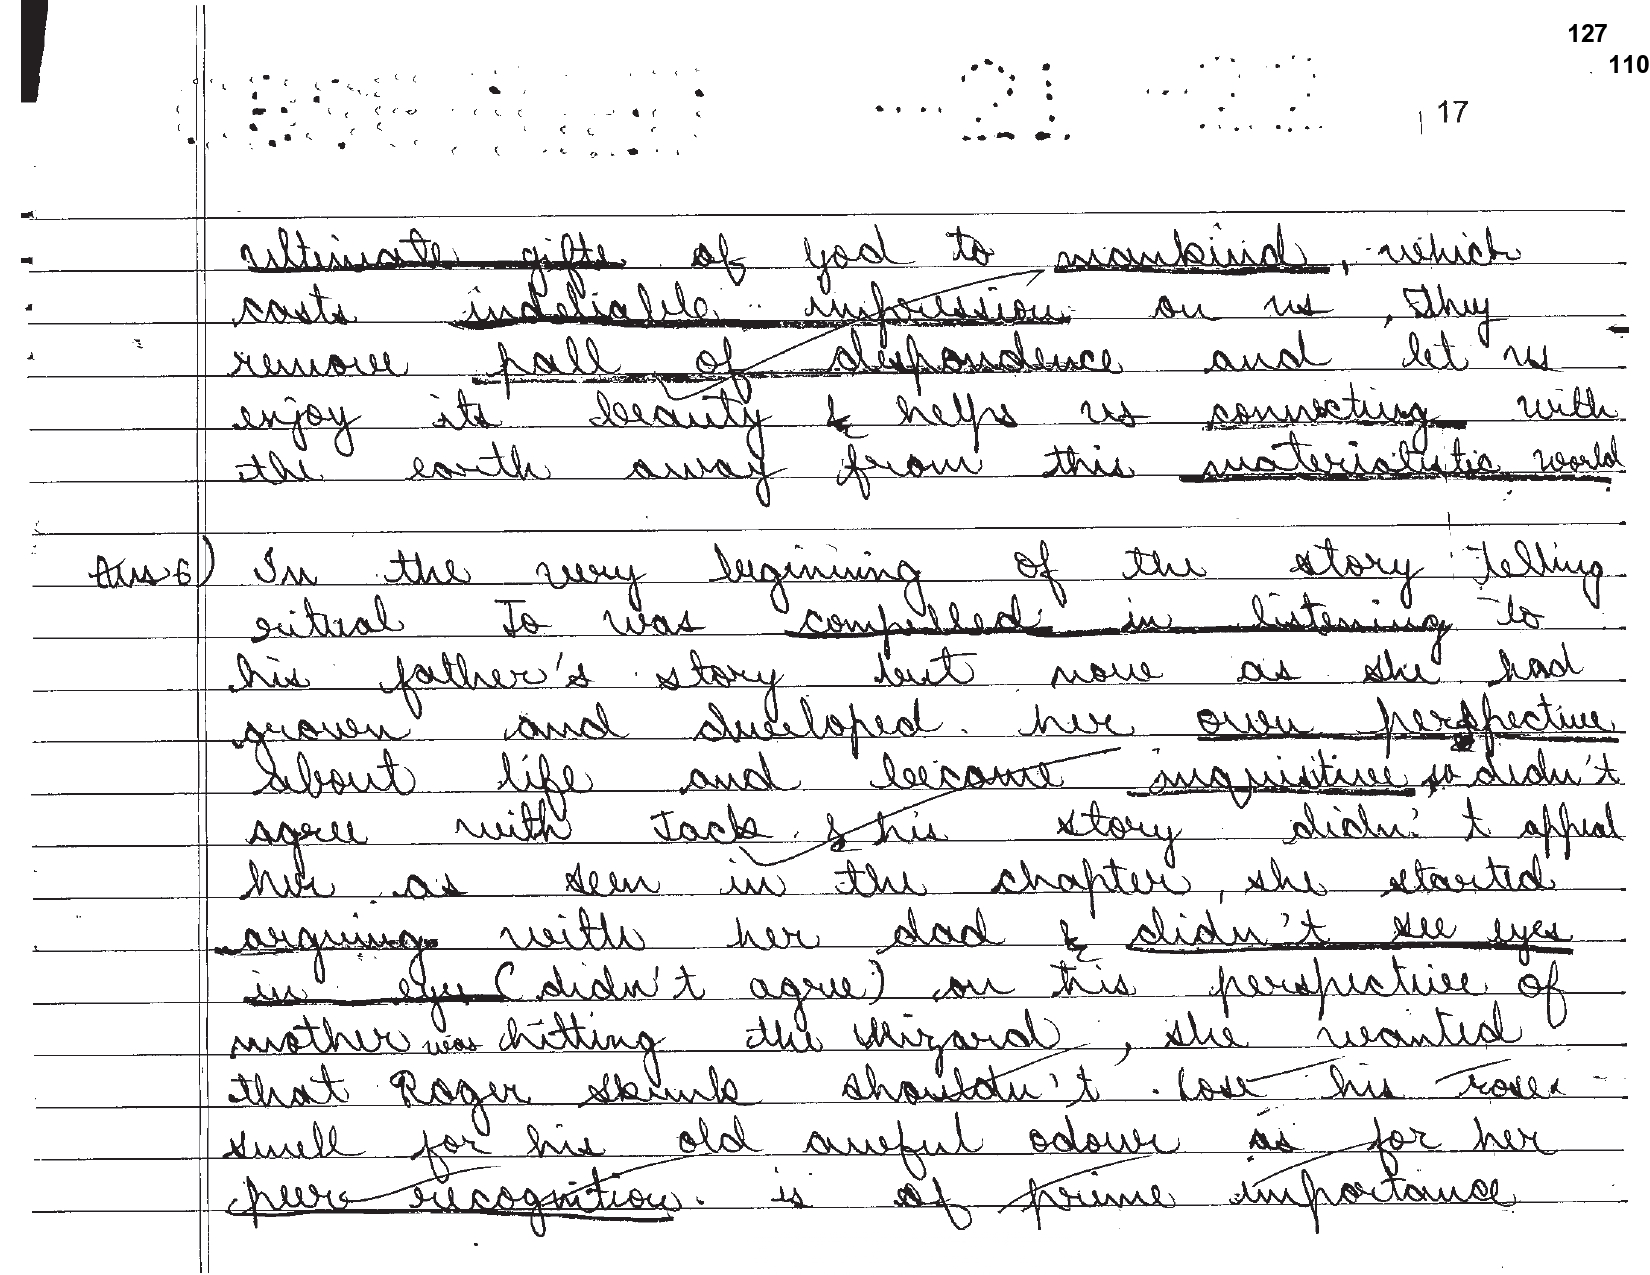 127
110
17
ultimate gifts of god to mankind, which
casts indeliable impression on us, They
remove pall of despondence and let us
enjoy its beauty & helps us connecting with
the earth away from this materialistic world
Ans 6) In the very begining of the story telling
ritual Jo was compelled in listening to
his father's story but now as she had
grown and developed her own perspective
about life and become inquisitive so didn't
agree with Jack & his story didn't appeal
her as seen in the chapter, she started
arguing with her dad & didn't see eyes
in eyes (didn't agree) on this perspective of
mother was hitting the Wizard, she wanted
that Roger Skunk shouldn't lose his roses
smell for his old aweful odour as for her
peer recognition is of prime importance